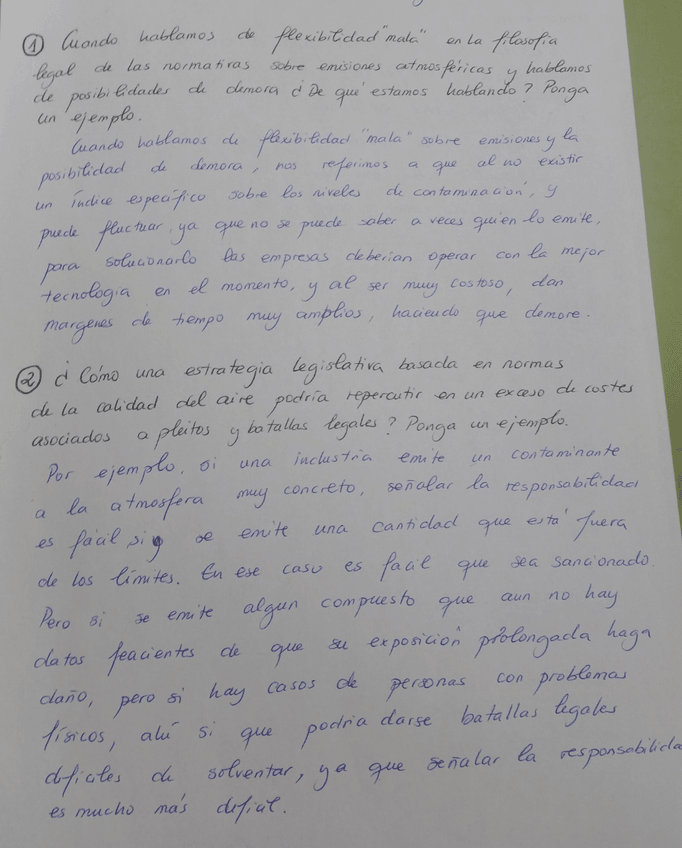 ① Cuando hablamos de flexibilidad "mala" en la filosofía
legal de las normativas sobre emisiones atmosféricas y hablamos
de posibilidades de demora ¿De qué estamos hablando? Ponga
un ejemplo.
Cuando hablamos de flexibilidad "mala" sobre emisiones y la
posibilidad de demora, nos referimos a que al no existir
un índice específico sobre los niveles de contaminación, y
puede fluctuar, ya que no se puede saber a veces quien lo emite,
para solucionarlo las empresas deberian operar con la mejor
tecnologia en el momento, y al ser muy costoso, dan
margenes de tiempo muy amplios, haciendo que demore.
② ¿Cómo una estrategia legislativa basada en normas
de la calidad del aire podría repercutir en un exceso de costes
asociados a pleitos y batallas legales? Ponga un ejemplo.
Por ejemplo, si una industria emite un contaminante
a la atmosfera muy concreto, señalar la responsabilidad
es fácil si se emite una cantidad que está fuera
de los límites. En ese caso es facil que sea sancionado.
Pero si se emite algun compuesto que aun no hay
datos feacientes de que su exposición prolongada haga
daño, pero si hay casos de personas con problemas
físicos, ahí si que podria darse batallas legales
dificiles de solventar, ya que señalar la responsabilida
es mucho más dificil.